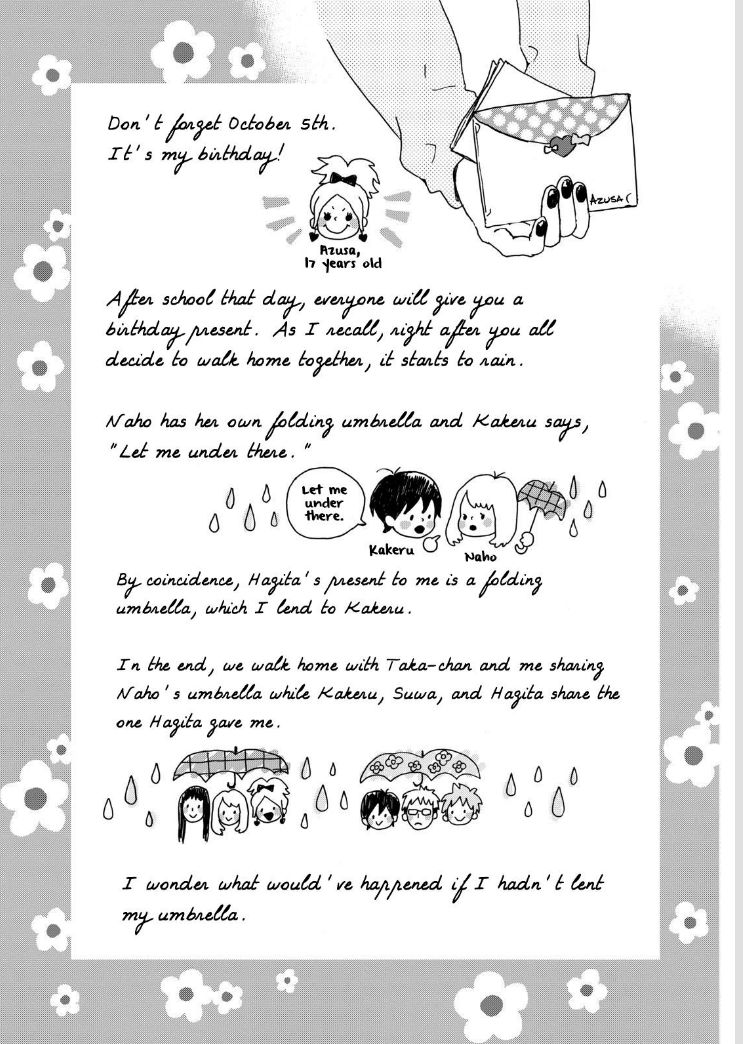 Don't forget October 5th.
It's my birthday!
AZUSA
Azusa,
17 years old
After school that day, everyone will give you a
birthday present. As I recall, right after you all
decide to walk home together, it starts to rain.
Naho has her own folding umbrella and Kakeru says,
"Let me under there."
Let me
under
there.
Kakeru
Naho
By coincidence, Hagita's present to me is a folding
umbrella, which I lend to Kakeru.
In the end, we walk home with Taka-chan and me sharing
Naho's umbrella while Kakeru, Suwa, and Hagita share the
one Hagita gave me.
I wonder what would've happened if I hadn't lent
my umbrella.